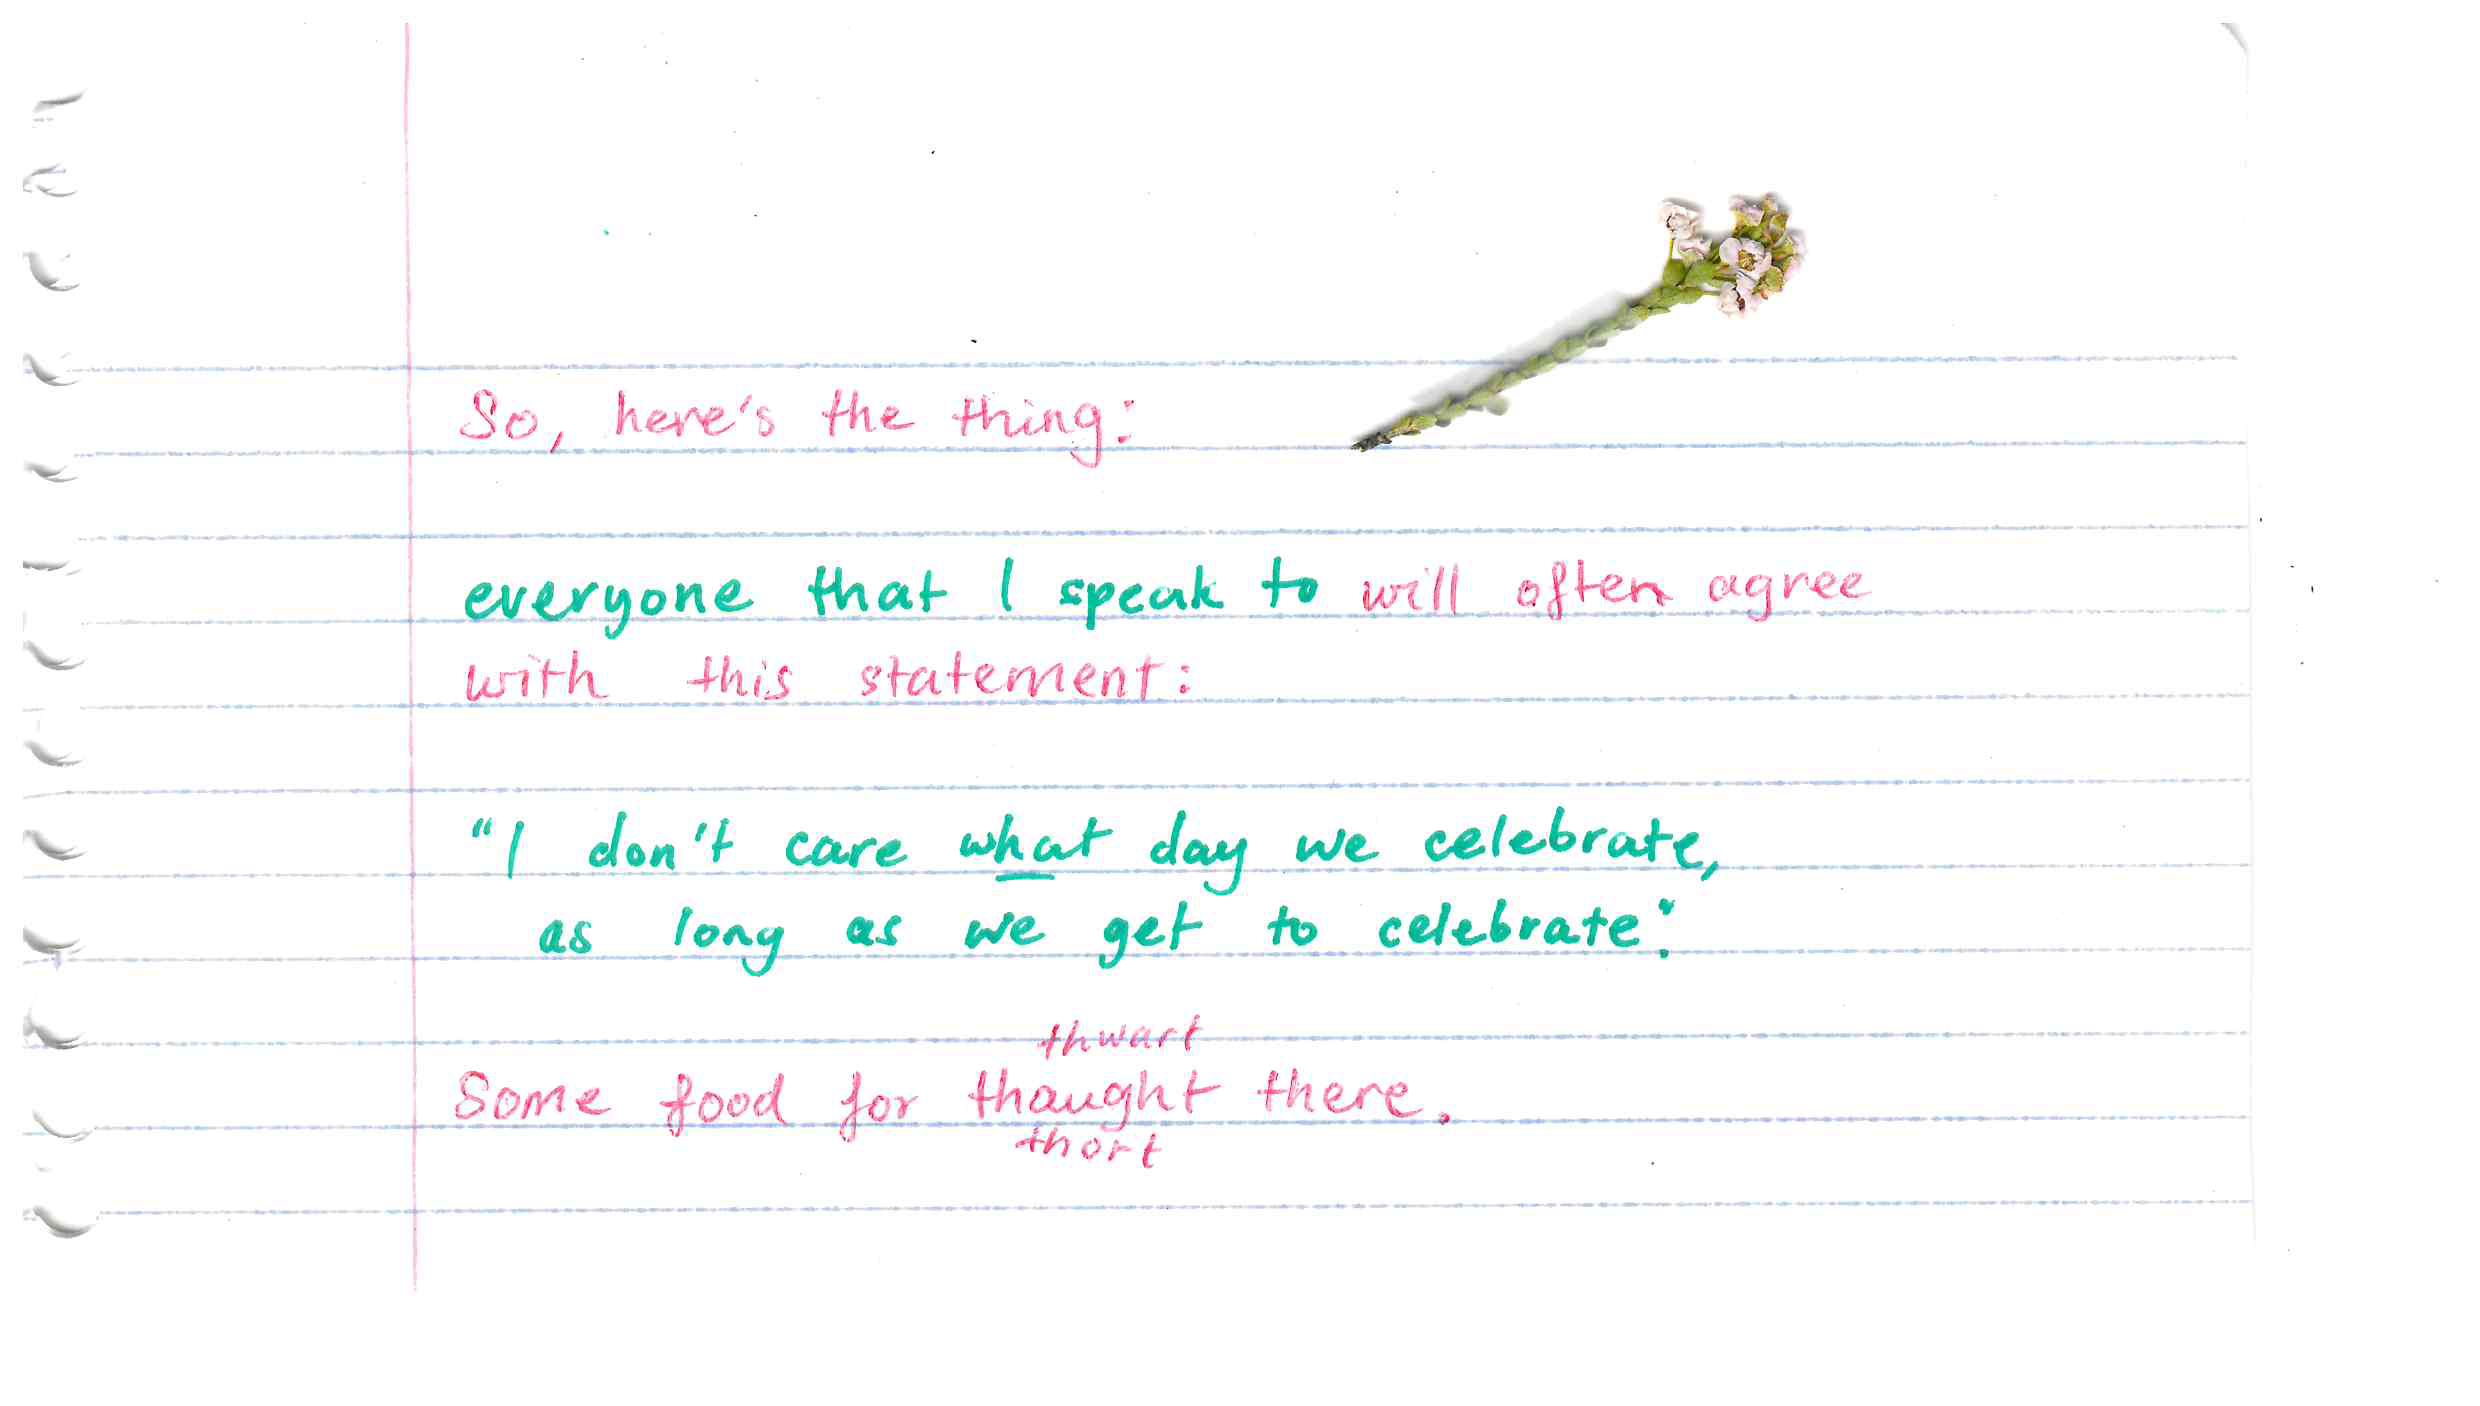 So, here's the thing:
everyone that I speak to will often agree
with this statement:
"I don't care what day we celebrate,
as long as we get to celebrate".
thwart
Some food for thaught there.
thort